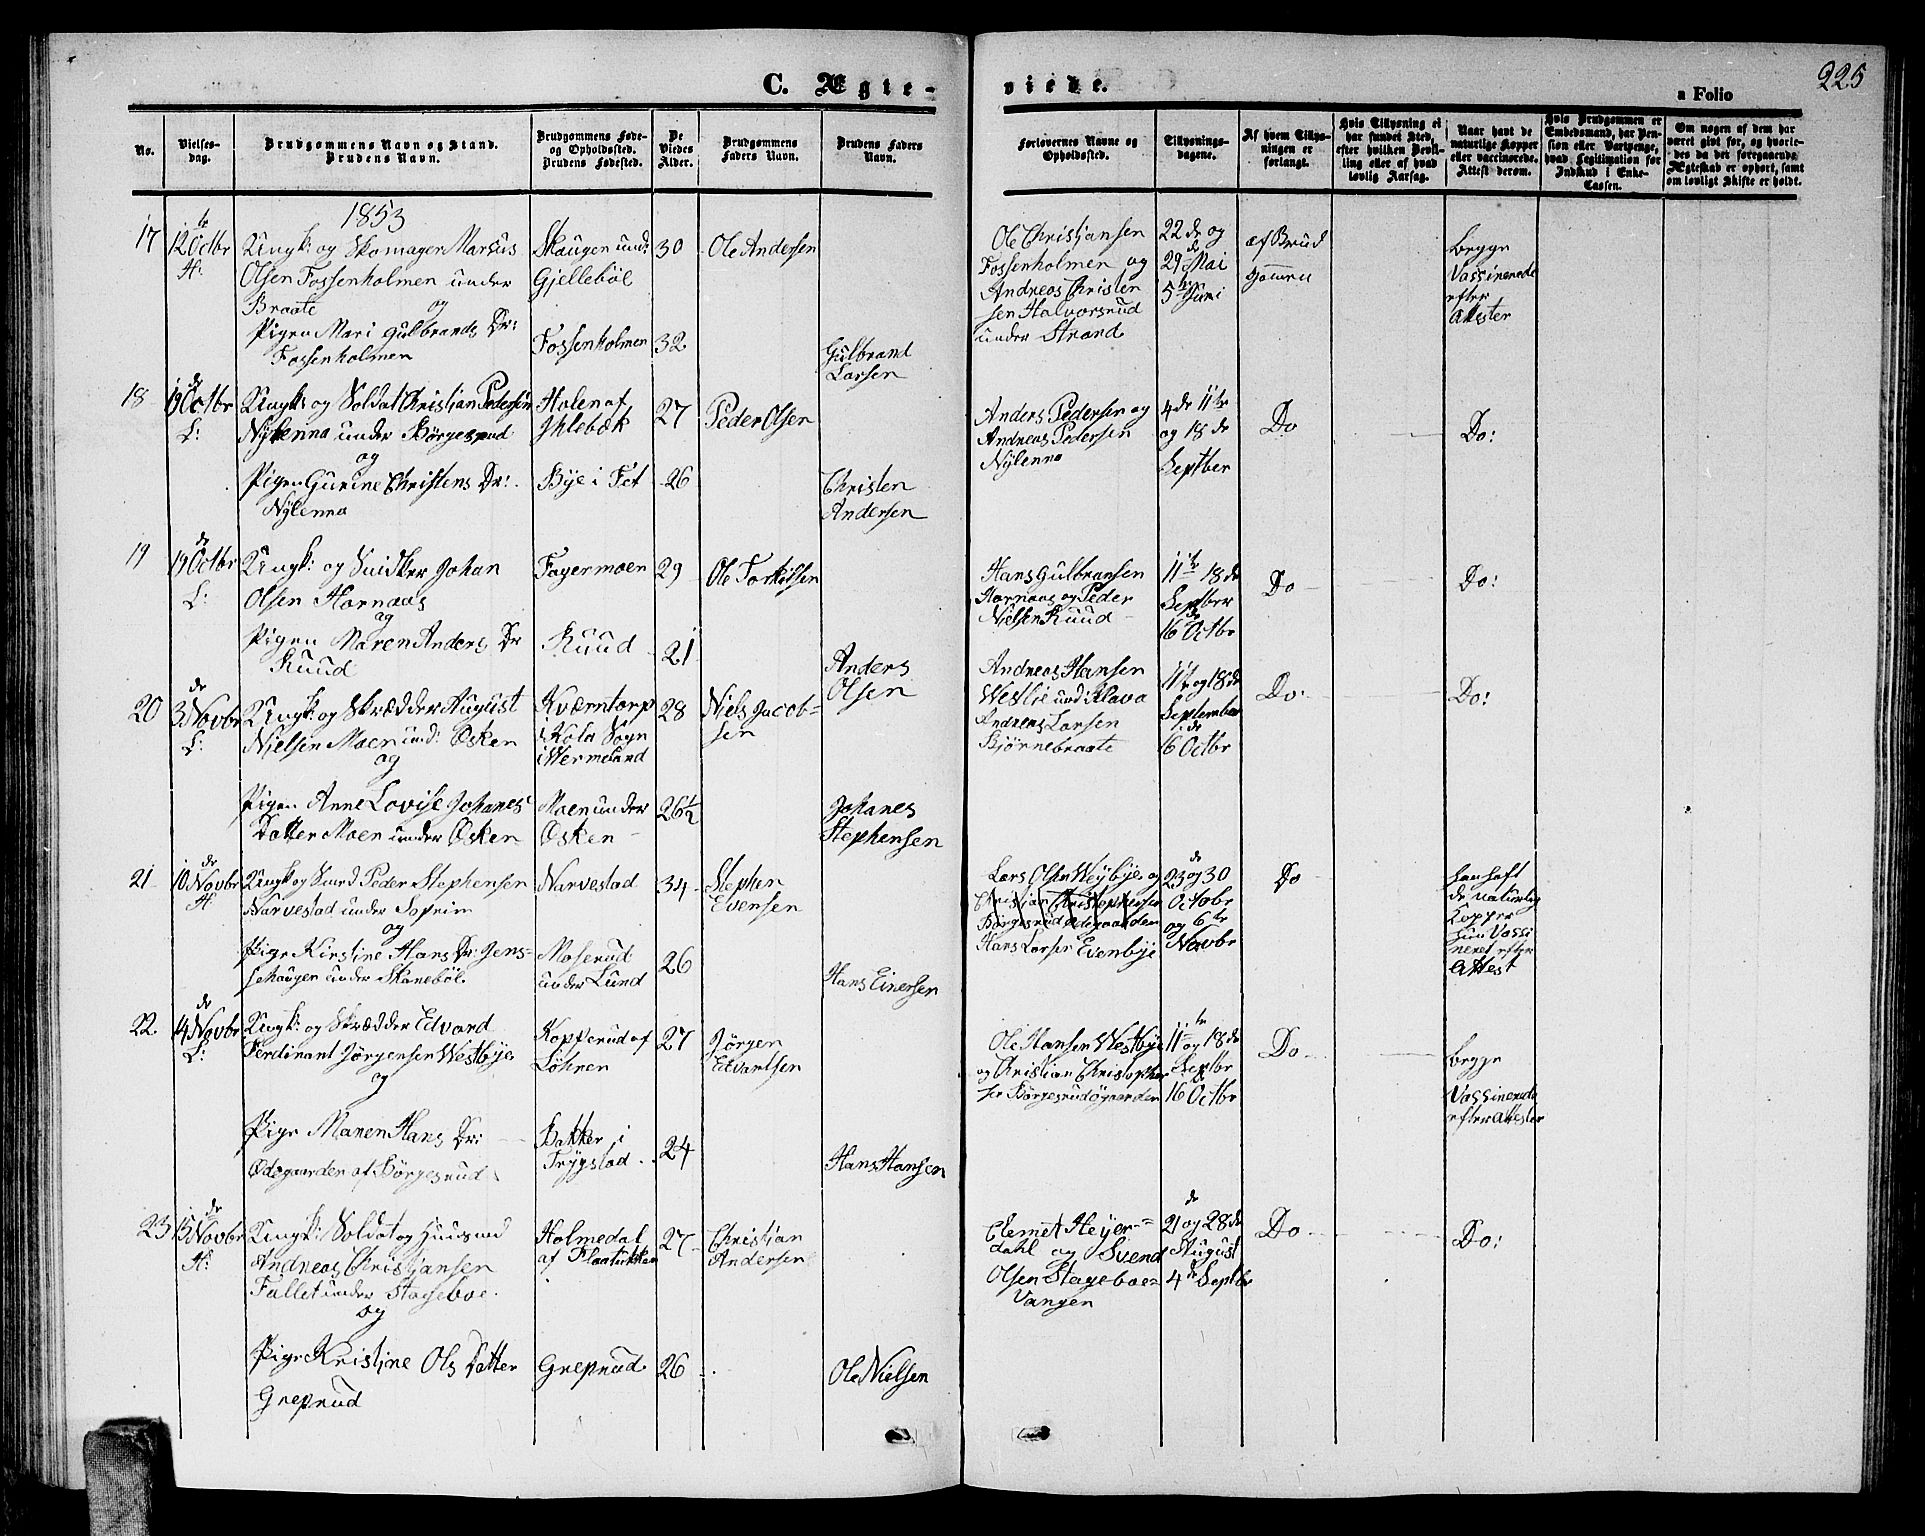 C. Ægte-
viede.
a Folio
225
No.
Vielses-
dag.
Brudgommens Navn og Stand.
Brudens Navn.
Brudgommens Føde-
og Opholdssted.
Brudens Fødested.
De
Viedes
Alder.
Brudgommens
Faders Navn.
Brudens Faders
Navn.
Forlovernes Navne og
Opholdssted.
Tillysnings-
dagene.
Af hvem Tillys-
ningen er
forlangt.
Hvis Tillysning ei
har fundet Sted,
efter hvilken Bevil-
ling eller af hvad
lovlig Aarsag.
Naar havt de
naturlige Kopper
eller vaccinerede.
Attest derom.
Hvis Brudgommen er
Embedsmand, har Pen-
sion eller Vartpenge,
hvad Legitimation for
Indskud i Enke-
Cassen.
Om nogen af dem har
været givt før, og hvorle-
des da det foregaaende
Ægteskab er ophørt, samt
om lovligt Skifte er holdt.
1853
17
12 te Octbr
H:
Ungk: og Skomager Marcus
Olsen Fossenholmen under
Braate
og
Pigen Mari Gulbrands Dr:
Fossenholmen
Skaugen und:
Gjellebøl
Fossenholmen
30
32
Ole Andersen
Gulbrand
Larsen
Ole Christjansen
Fossenholmen og
Andreas Christen
sen Halvorsrud
under Strand
22 de og
29 de Mai
5 te Juni
af Brud
gommen
begge
Vassinerede
efter
Attester
18
19 de Octbr
L:
Ungk: og Soldat Christian Pedersen
Nylenna under Børgesrud
og
Pigen Gurine Christens Dr:
Nylenna
Holen af
Ihlebæk
Bye i Fet
27
26
Peder Olsen
Christen
Andersen
Anders Pedersen og
Andreas Pedersen
Nylenna
4 de 11 te
og 18 de
Septber
Do
Do:
19
19 de Octbr
L:
Ungk: og Snidker Johan
Olsen Hornaas
og
Pigen Maren Anders Dr
Ruud
Fagermoen
Ruud
29
21
Ole Torkilsen
Anders
Olsen
Hans Gulbransen
Hornaas og Peder
Nielsen Ruud
11 te 18 de
Septbrer
16 de Octbr
Do
Do:
20
3 de Novbr
L:
Ungk: og Skrædder August
Nielsen Moen und: Øsken
og
Pigen Anne Lovise Johanes
Datter Moen under Øsken
Kværntorp
i Köla Sogn
i Wermeland
Moen under
Øsken
28
26½
Niels Jacob-
sen
Johanes
Stephensen
Andreas Hansen
Westlie und: Klava
Andreas Larsen
Bjørnebraate
11 te og 18 de
September
16 de Octbr
Do:
Do:
21
10 de Novbr
H:
Ungk og Smed Peder Stephensen
Narvestad under Soprim
og
Pige Kirstine Hans Dr: Jens-
sehaugen under Skanebøl.
Narvestad
Moserud
under Lund
34
26
Stephen
Evensen
Hans Einersen
Lars Olsen Weybye og
Christian Christophersen
Børgesrud Ødegaarden
Hans Larsen Evenbye
23 de og 30
Octobr
og 6 te
Novbr
Do
han haft
de naturlig
Kopper
hun Vassi
neret efter
Attest
22
14 de Novbr
L:
Ungk: og Skrædder Edvard
Ferdinant Jørgensen Westbye
og
Pige Maren Hans Dr:
Ødegaarden af Børgesrud
Kopperud af
Løhren
Bakker i
Trygstad
27
24
Jørgen
Edvartsen
Hans Hansen
Ole Hansen Westbye
og Christian Christopher
sen Børgesrudøgaarden
11 te og 18 de
Septbr
16 de Octbr
Do
begge
Vassinerede
efter Attester
23
15 de Novbr
H:
Ungk: Soldat og Huusmd
Andreas Christjansen
Fallet under Stageboe.
og
Pige Kristine Ols Datter
Grepsrud
Holmedal
af Flaatukken
Grepsrud
27
26
Christian
Andersen
Ole Nielsen
Clemet Heyer-
dahl og Svend
Olsen Stageboe-
Vangen
21 de og 28 de
August
4 de Septbr
Do
Do: